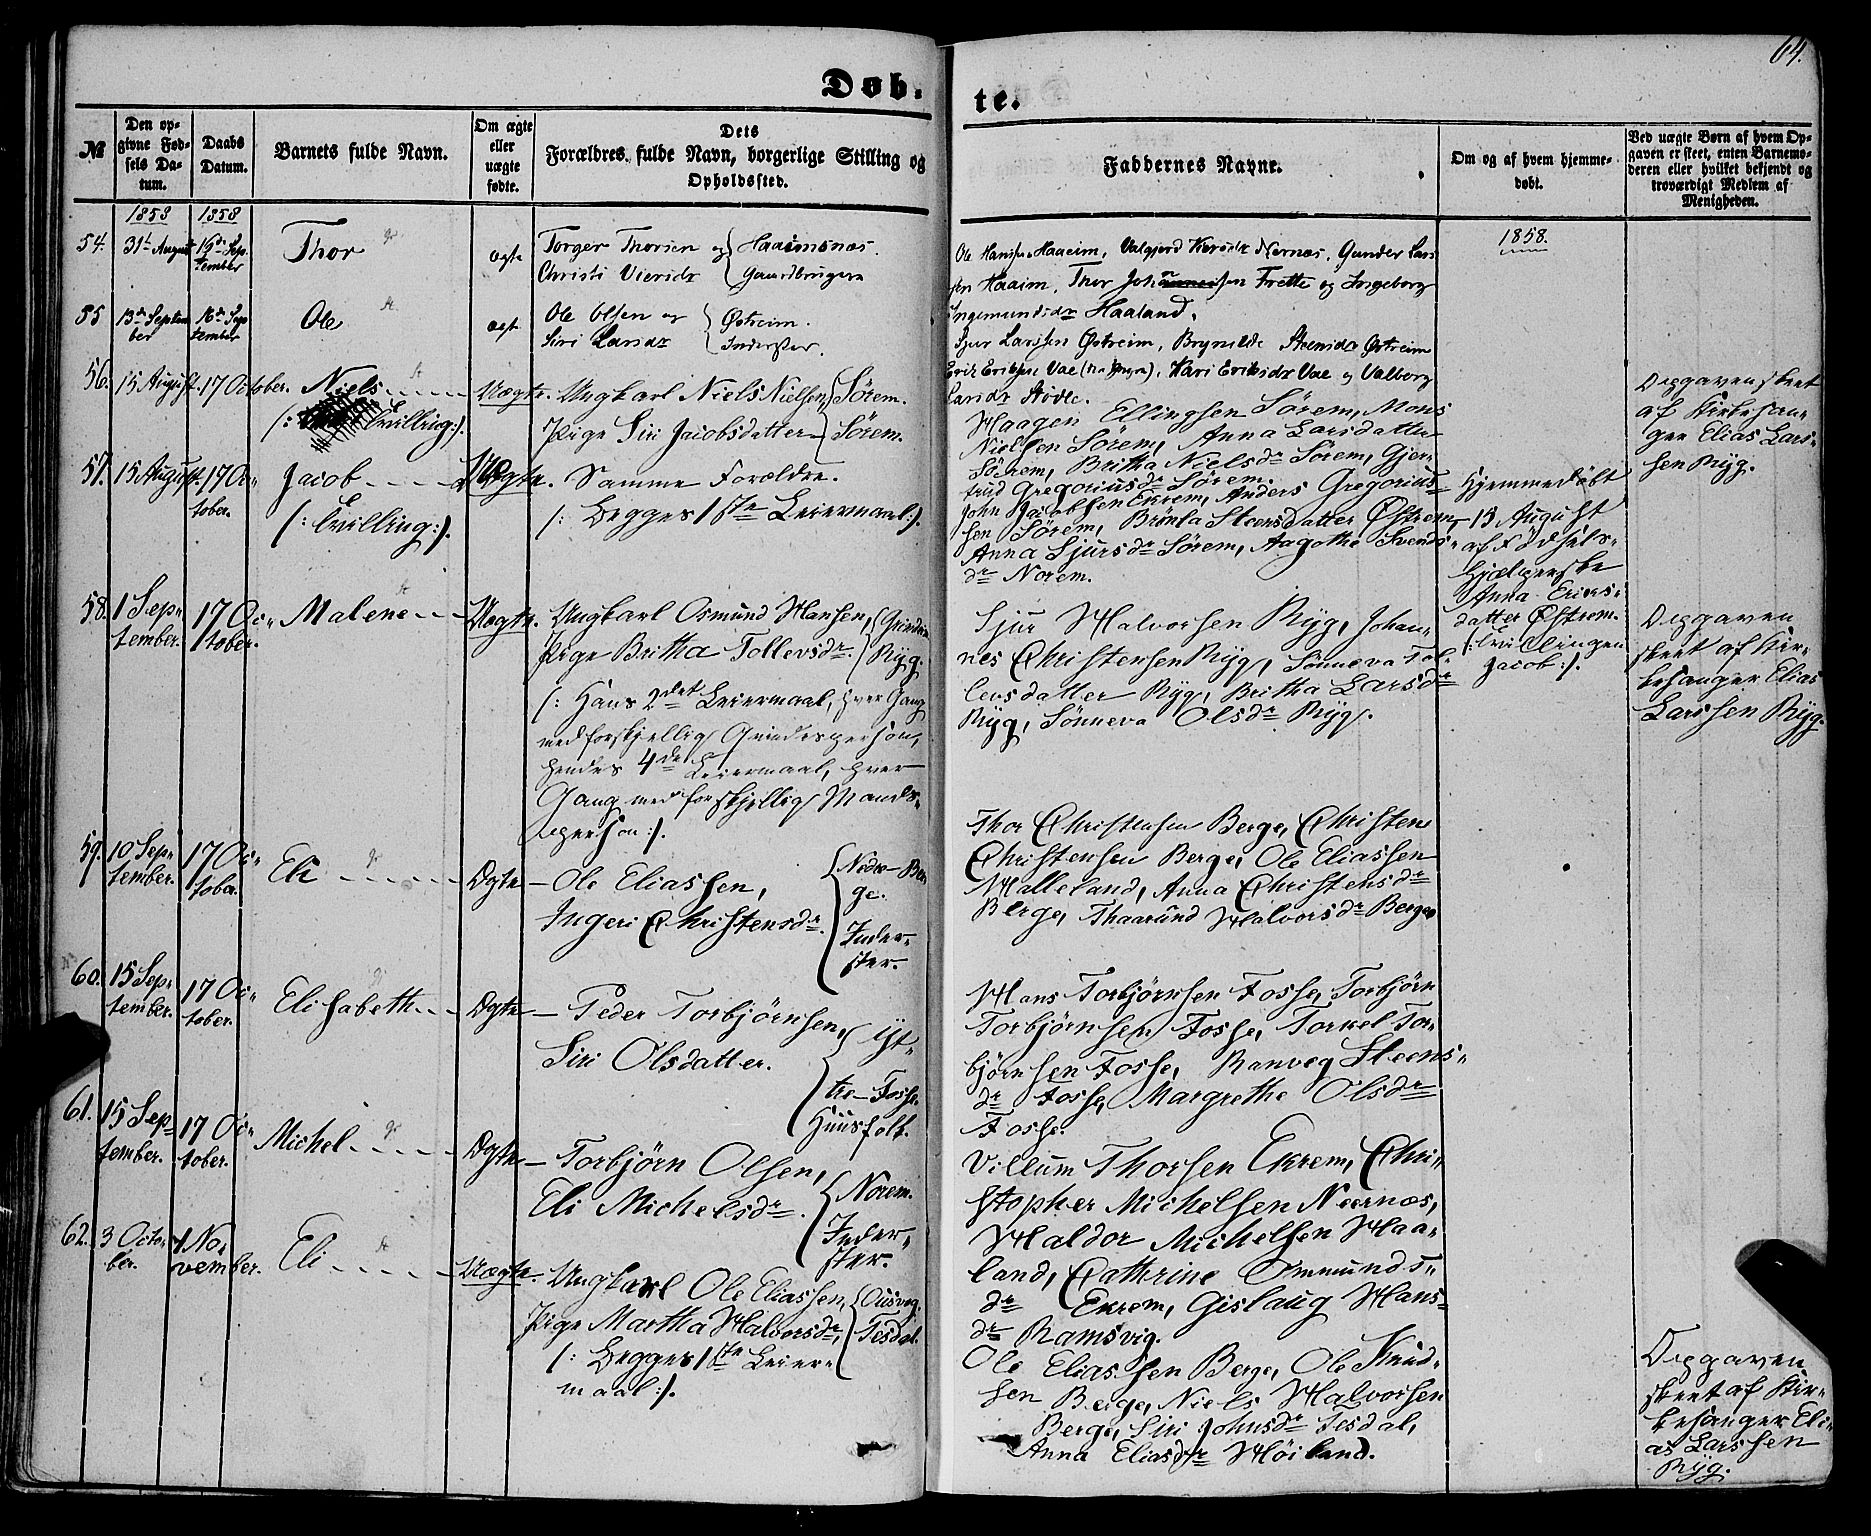 64.
Døb-
te.
№
Den op-
givne Fød-
sels Da-
tum.
Daabs
Datum.
Barnets fulde Navn.
Om ægte
eller
uægte
fødte.
Dets
Forældres fulde Navn, borgerlige Stilling og
Opholdssted.
Faddernes Navne.
Om og af hvem hjemme-
døbt.
Ved uægte Børn af hvem Op-
gaven er skeet, enten Barnemo-
deren eller hvilket bekjendt og
troværdigt Medlem af
Menigheden.
1858
1858
1858.
54.
31te August
19de Sep
tember
Thor
ægte
Torger Thorsen og
Christi Viersdr
Haaimsnæs.
Gaardbrugere
Ole Hansen Haaeim, Valgjerd Nernæs, Gunder Lars
sen Haaim, Thor Johannessen Frette og Ingeborg
Ingemundsdr Haaland.
55
13de Septem
ber
16de Sep
tember
Ole
ægte
Ole Olsen og
Siri Larsdr
Østreim.
Inderster.
Sjur Larssen Østreim, Brynilde Steensdr Østreim
Erik Eriksen Vae, Kari Eriksdr Vae og Valborg
Larsdr Stødle.
56.
15 August.
17 October.
Niels
(: Tvilling:).
Uægte.
Ungkarl Niels Nielsen,
Pige Siri Jacobsdatter
Sørem.
Sørem.
Haagen Ellingsen Sørem, Mons
Nielsen Sørem, Anna Larsdatter
Sørem, Britha Nielsdr Sørem, Gjer-
trud Gregoriusdr Sørem.
Opgaven skeet
af Kirkesan-
ger Elias Lars-
sen Ryg.
57.
15 August.
17 Oc-
tober.
Jacob
(: Tvilling:).
Uægte.
Samme Forældre.
(: Begges 1ste Leiermaal:).
John Jacobsen Ekrem, Anders Gregorius-
sen Sørem, Brönla Steensdatter Østrem,
Anna Sjursdr Sørem, Aagothe Svends-
dr Norem.
Hjemmedøbt
15 August
af Födsels-
hjælperske
Anna Erics-
datter Østrem.
(: Tvillingen
Jacob:).
58.
1 Sep-
tember.
17 Oc-
tober.
Malene
Uægte.
Ungkarl Osmund Hansen,
Pige Britha Tollevsdr.
Ryg.
(: Hans 2det Leiermaal, hver Gang
med forskjellig Qvindesperson,
hendes 4de Leiermaal, hver
Gang med forskjellig Mands-
person:).
Sjur Halvorsen Ryg, Johan-
nes Christensen Ryg, Sönneva Tol-
levsdatter Ryg, Britha Larsdr
Ryg, Sönneva Olsdr Ryg.
Opgaven
skeet af Kir-
kesanger Elias
Larssen Ryg.
59.
10 Sep-
tember.
17 Oc-
tober.
Eli
Ægte
Ole Eliassen,
Ingeri Christensdr.
Nedre-Ber
ge.
Inder-
ster.
Thor Christensen Berge, Christen
Christensen Berge, Ole Eliassen
Halleland, Anna Christensdr
Berge, Thaarund Halvorsdr Berge
60.
15 Sep-
tember.
17 Oc-
tober.
Elisabeth
Ægte
Peder Torbjörnsen,
Siri Olsdatter.
Yt-
tre-Fosse.
Huusfolk.
Hans Torbjörnsen Fosse, Torbjörn
Torbjörnsen Fosse, Torkel Tor-
björnsen Fosse, Ranveg Steens-
dr Fosse, Margrethe Olsdr
Fosse.
61.
15 Sep-
tember.
17 Oc-
tober.
Michel
Ægte
Torbjörn Olsen,
Eli Michelsdr.
Norem.
Inder-
ster.
Villum Thorsen Ekrem, Chri-
stopher Michelsen Neernæs,
Haldor Michelsen Haa-
land, Cathrine Ommunds-
dr Ekrem, Gislaug Hans-
dr Ramsvig.
62.
3 Octo-
ber.
1 No-
vember.
Eli
Uægte.
Ungkarl Ole Eliassen,
Pige Martha Halvorsdr,
(: Begges 1ste Leier-
maal:).
Ousvog.
Tesdal.
Ole Eliassen Berge, Ole Knud-
sen Berge, Niels Halvorsen
Berge, Siri Johnsdr Tesdal,
Anna Eliasdr Höiland.
Opgaven
skeet af Kir-
kesanger Eli-
as Larssen
Ryg.